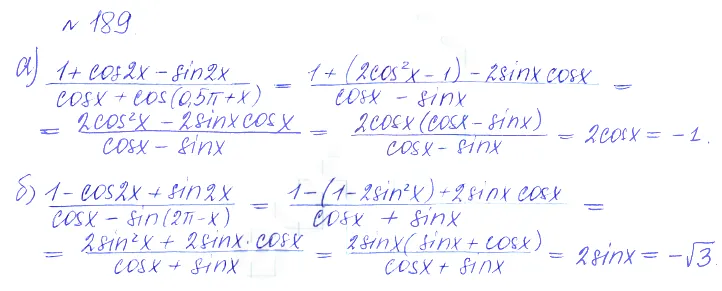 № 189
а) (1 + cos2x − sin2x)/(cosx + cos(0,5π + x)) = (1 + (2cos²x − 1) − 2sinx cosx)/(cosx − sinx) =
= (2cos²x − 2sinx cosx)/(cosx − sinx) = (2cosx(cosx − sinx))/(cosx − sinx) = 2cosx = −1.
б) (1 − cos2x + sin2x)/(cosx − sin(2π − x)) = (1 − (1 − 2sin²x) + 2sinx cosx)/(cosx + sinx) =
= (2sin²x + 2sinx · cosx)/(cosx + sinx) = (2sinx(sinx + cosx))/(cosx + sinx) = 2sinx = −√3.